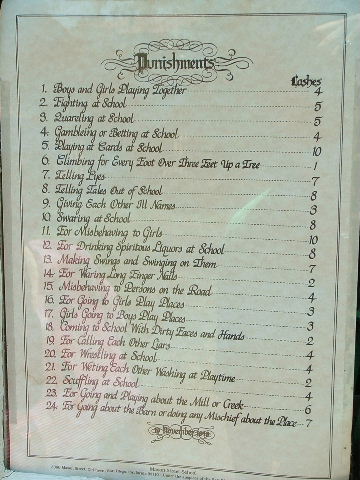 Punishments
Lashes
1. Boys and Girls Playing Together 4
2. Fighting at School 5
3. Quareling at School 5
4. Gambleing or Betting at School 4
5. Playing at Cards at School 10
6. Climbing for Every Foot Over Three Feet Up a Tree 1
7. Telling Lyes 7
8. Telling Tales Out of School 8
9. Giving Each Other Ill Names 3
10. Swaring at School 8
11. For Misbehaving to Girls 10
12. For Drinking Spiritous Liquors at School 8
13. Making Swings and Swinging on Them 7
14. For Waring Long Finger Nails 2
15. Misbehaving to Persons on the Road 4
16. For Going to Girls Play Places 3
17. Girls Going to Boys Play Places 3
18. Coming to School With Dirty Faces and Hands 2
19. For Calling Each Other Liars 4
20. For Wrestling at School 4
21. For Weting Each Other Washing at Playtime 2
22. Scuffling at School 4
23. For Going and Playing about the Mill or Creek 6
24. For Going about the Barn or doing any Mischief about the Place 7
November
Mason Street School